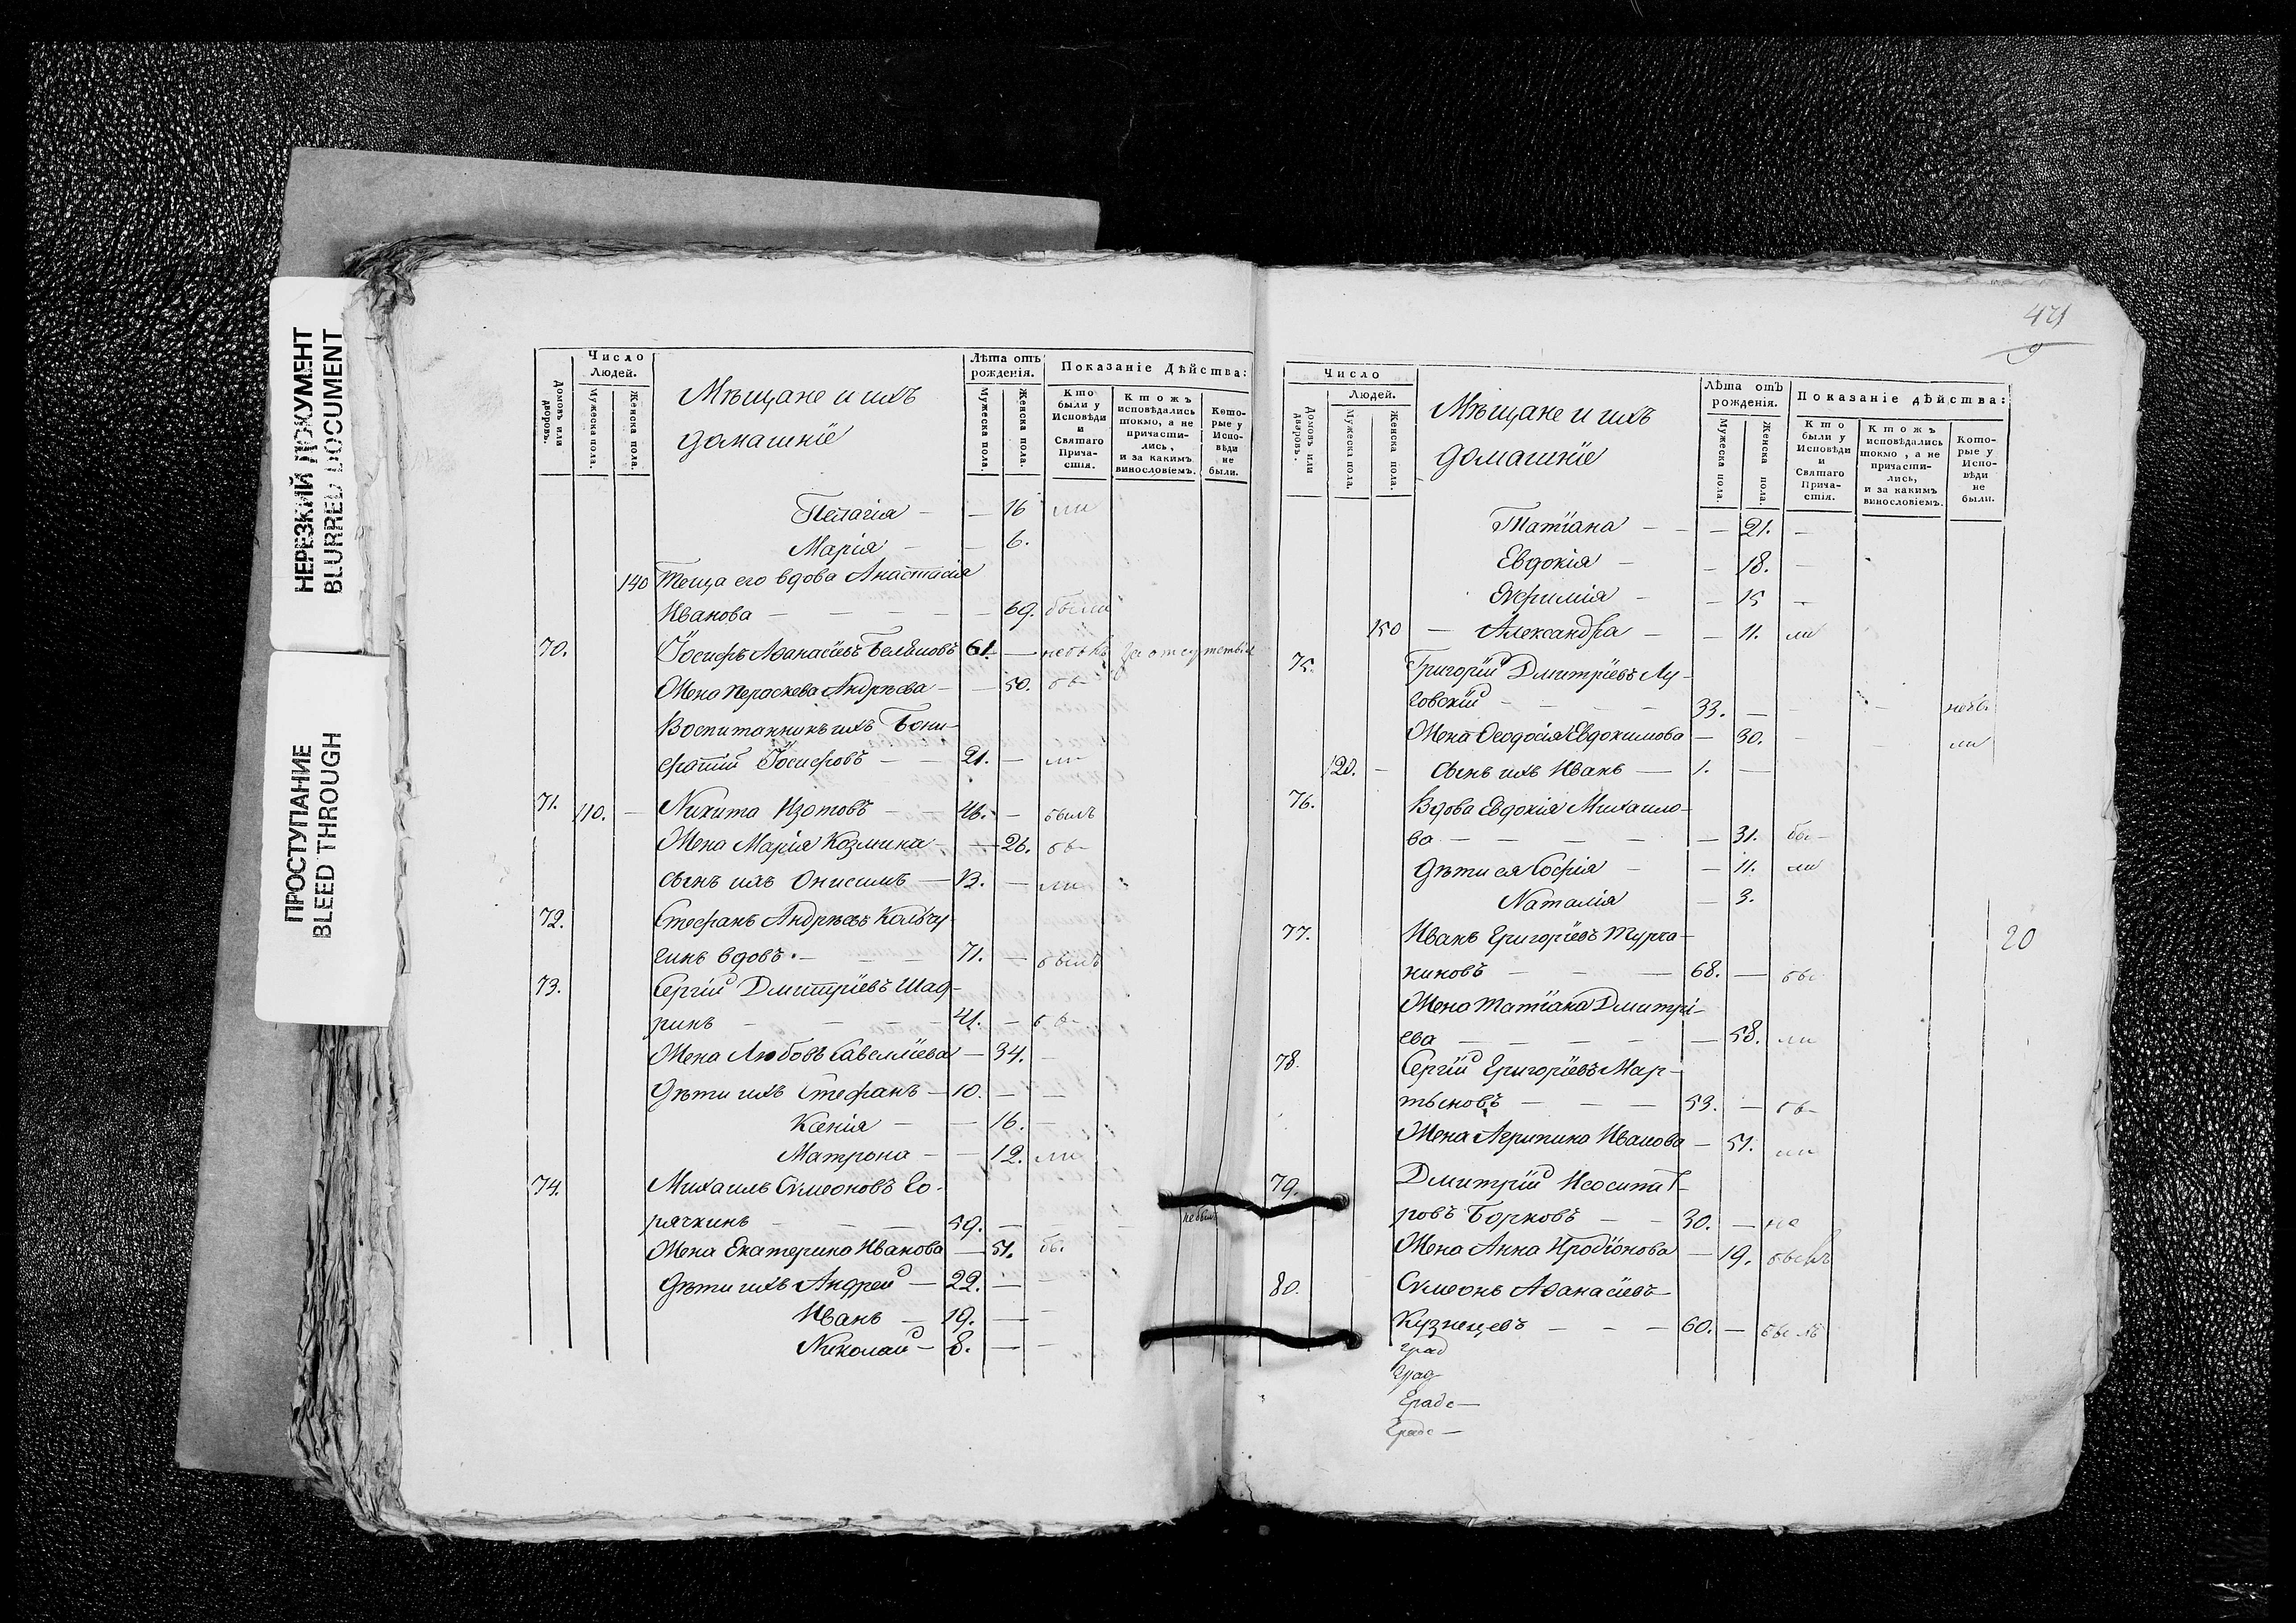 НЕРЕЗКИЙ ДОКУМЕНТ
BLURRED DOCUMENT
ПРОСТУПАНИЕ
BLEED THROUGH
Число
Людей.
Лѣта отъ
рожденія.
Показаніе Дѣйства:
Домовъ или
дворовъ.
Мужеска пола.
Женска пола.
Мѣщане и ихъ
домашніе
Мужеска пола.
Женска пола.
Кто
были у
Исповѣди
и
Святаго
Прича-
стія.
Ктожъ
исповѣдались
токмо, а не
причасти-
лись,
и за какимъ
винословіемъ.
Кото-
рые у
Испо-
вѣди
не
были.
Пелагія — — 16 ли
Марія — — 6.
140 Теща его вдова Анастасія
Иванова — — — — 69. были
70. Іосифъ Аѳанасіевъ 61. — небылъ за отсутствіем
Жена Параскева Андрѣева — — 50. бы
Воспитанникъ ихъ Бони-
фатій Іосифовъ — — 21. — ли
71. 110. — Никита Изотовъ — 46. — былъ
Жена Марія Козмина — — 26. бы-
сынъ ихъ Онисимъ — 13. — ли
72. Стефанъ Андрѣевъ Колчу-
гинъ вдовъ. — — — 71. — былъ
73. Сергій Дмитріевъ Шад-
ринъ — — — — 41. — бы-
Жена Любовь Савеліева — 34. —
Дѣти ихъ Стефанъ — 10. — —
Ксенія — — 16. —
Матрона — — 12. ли
74. Михаилъ Симеоновъ Го-
рячкинъ — — — 59. — — небыл
Жена Екатерина Иванова — 51. бы.
Дѣти ихъ Андрей — 22. — —
Иванъ — 19. — —
Николай — 8. — —
471
9
Число
Людей.
Лѣта отъ
рожденія.
Показаніе дѣйства:
Домовъ или
дворовъ.
Мужеска пола.
Женска пола.
Мѣщане и ихъ
домашніе
Мужеска пола.
Женска пола.
Кто
были у
Исповѣди
и
Святаго
Прича-
стія.
Ктожъ
исповѣдались
токмо, а не
причасти-
лись,
и за какимъ
винословіемъ.
Кото-
рые у
Испо-
вѣди
не
были.
Татіана — — — 21. —
Евдокія — — 18. —
Евфимія — — 15 —
150 — Александра — — 11. ли
75. Григорій Дмитріевъ Лу-
говскій — — — — 33. — — — небы
Жена Ѳеодосія Евдокимова — 30. — — ли
120. — сынъ ихъ Иванъ — 1. —
76. Вдова Евдокія Михаило-
ва — — — — — — 31. бы-
дѣти ея Софія — — 11. ли
Наталія — 3.
77. Иванъ Григоріевъ Турка-
20
никовъ — — — 68. — бы
Жена Татіана Дмитрі-
ева — — — — — — 58. ли
78. Сергій Григоріевъ Мар-
тыновъ — — — 53. — бы-
Жена Агрипина Иванова — 51. ли
79. Дмитрій
ровъ Борковъ — — 30. — не
Жена Анна Иродіонова — 19. былъ
80. Симеонъ Аѳанасіевъ
Кузнецовъ — — — 60. — былъ
град
град
Граде —
Граде —